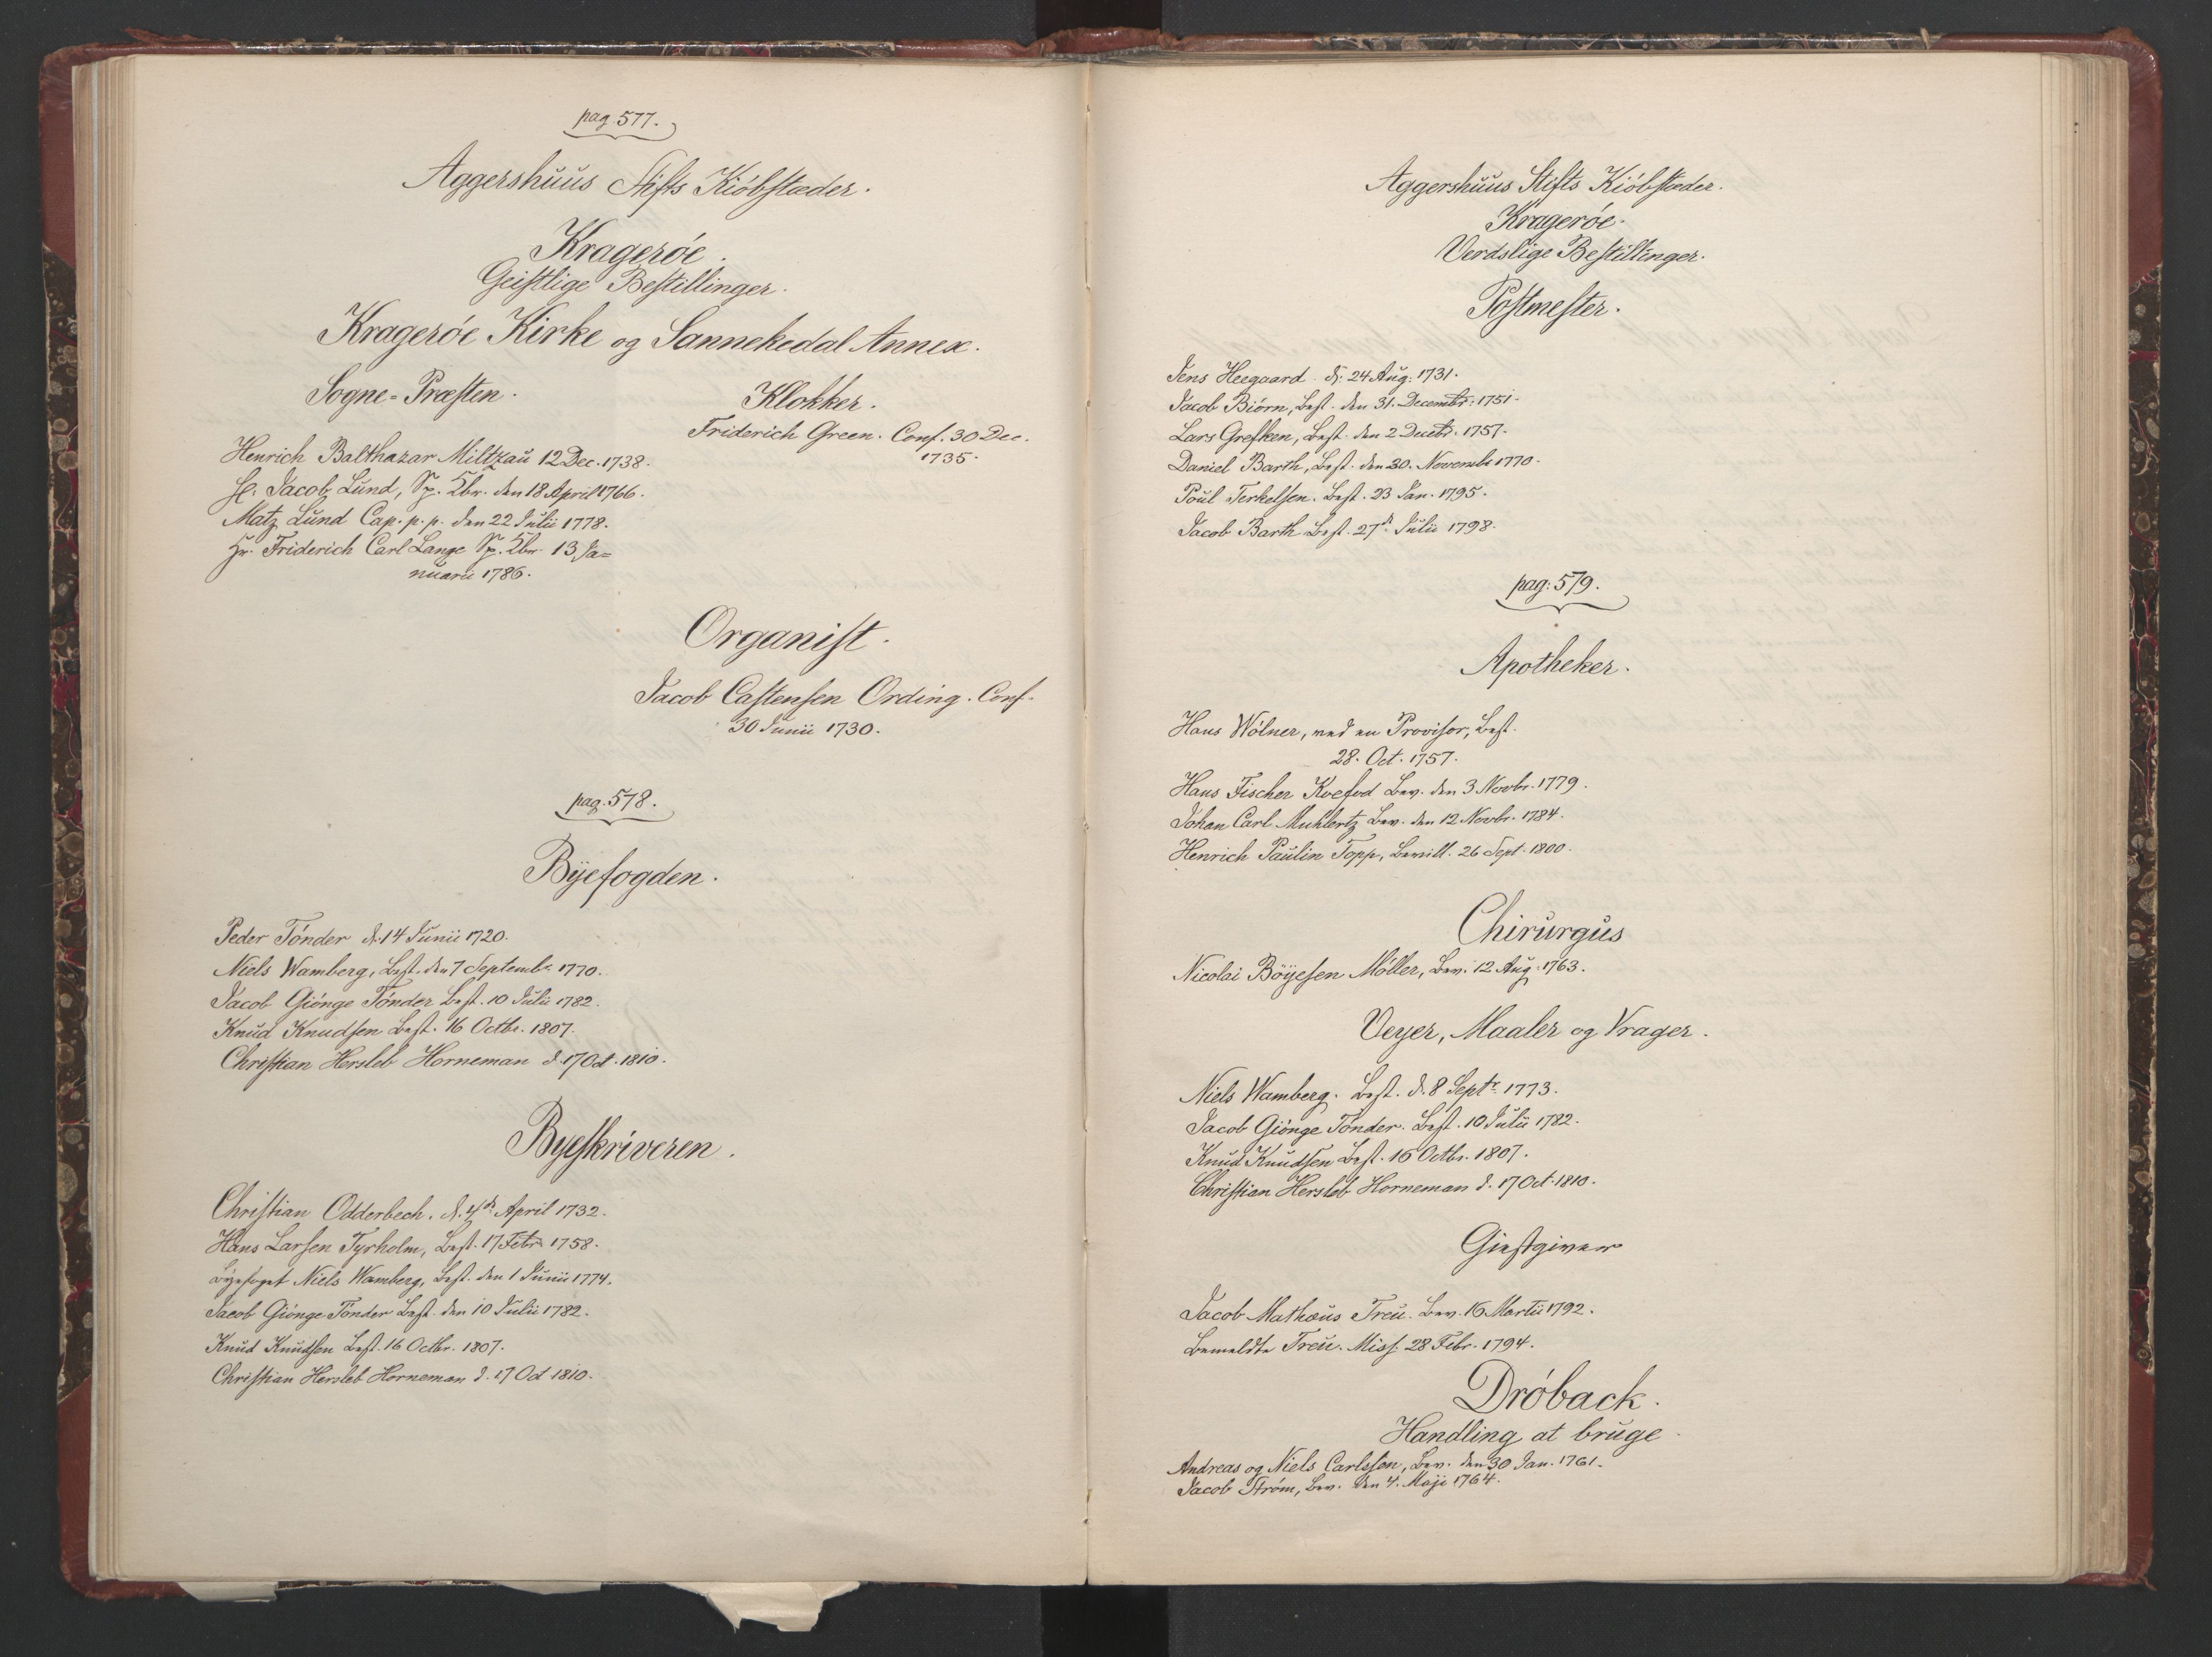 pag. 577.
Aggershuus Stifts Kiöbstæder.
Kragerøe.
Geistlige Bestillinger.
Kragerøe Kirke og Sannekedal Annex.
Sogne-Præsten.
Henrich Balthazar Miltzau 12 Dec. 1738.
Jacob Lund, Sp. Xbr. den 18 April 1766.
Matz Lund Cap. p. p. den 22 Julii 1778.
Hr. Friderich Carl Lange Sp. Xbr. 13 Ja=
nuarii 1786.
Klokker.
Friderich Green. Conf. 30 Dec.
1735.
Organist.
Jacob Castensen Ording. Conf.
30 Junii 1730.
pag. 578.
Byefogden.
Peder Tønder d. 14 Junii 1720.
Niels Wamberg, Best. den 7 Septembr. 1770.
Jacob Giønge Tønder Best. 10 Julii 1782.
Knud Knudsen Best. 16 Octbr. 1807.
Christian Hersleb Horneman d. 17 Oct. 1810.
Byeskriveren.
Christian Odderbech. d. 4de April 1732.
Hans Larsen Tyrholm, Best. 17 Febr. 1758.
Byefoget Niels Wamberg, Best. den 1 Junii 1774.
Jacob Giønge Tønder Best. den 10 Julii 1782.
Knud Knudsen Best. 16 Octbr. 1807.
Christian Hersleb Horneman d. 17 Oct 1810.
Aggershuus Stifts Kiöbstæder.
Kragerøe.
Verdslige Bestillinger.
Postmester.
Jens Heegaard. d. 24 Aug. 1731.
Jacob Biørn, Best. den 31. Decembr. 1751.
Lars Grefken, Best. den 2 Decbr. 1757.
Daniel Barth, Best. den 30. Novembr 1770.
Poul Terkelsen. Best. 23 Jan. 1795.
Jacob Barth Best. 27de Julii 1798.
pag: 579.
Apotheker.
Hans Wölner, med en Provisor, Best.
28. Oct. 1757.
Hans Fischer Koefod Bev. den 3 Novbr. 1779.
Johan Carl Muhlertz Bev. den 12 Novbr. 1784.
Henrich Paulin Topp, Bevill. 26 Sept. 1800.
Chirurgus
Nicolai Böyesen Möller, Bev. 12 Aug. 1763.
Veyer, Maaler og Vrager.
Niels Wamberg. Best. d. 8 Septr. 1773.
Jacob Giønge Tønder. Best. 10 Julii 1782.
Knud Knudsen Best. 16 Octbr. 1807.
Christian Hersleb Horneman d. 17 Oct. 1810.
Giestgiver
Jacob Mathæus Treu. Bev. 16 Martii 1792.
Bemeldte Treu. Miss. 28 Febr. 1794.
Dröback.
Handling at bruge
Andreas og Niels Carlsson, Bev. den 30 Jan. 1761.
Jacob Strøm, Bev. den 4. Maji 1764.